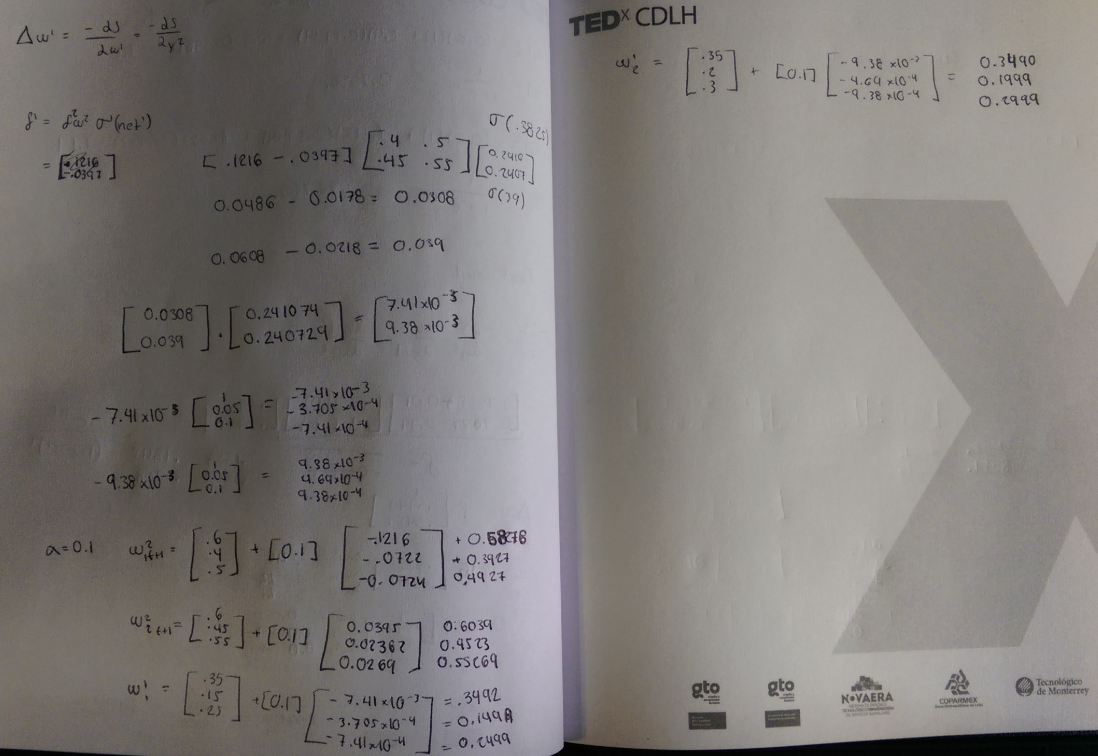 Δω' = -ds/2ω' = -ds/2y²
δ' = δ²ω² σ'(net')
= [.1216 -.0397]
σ(.3825)
[.1216 -.0397] [.4 .5 .45 .55] [0.2410 0.2407]
σ(39)
0.0486 - 0.0178 = 0.0308
0.0608 - 0.0218 = 0.039
[0.0308 0.039] · [0.241074 0.240729] = [7.41x10⁻³ 9.38x10⁻³]
-7.41x10⁻³ [1 0.05 0.1] = -7.41x10⁻³ -3.705x10⁻⁴ -7.41x10⁻⁴
-9.38x10⁻³ [1 0.05 0.1] = 9.38x10⁻³ 4.69x10⁻⁴ 9.38x10⁻⁴
α=0.1
ω²₁ₜ₊₁ = [.6 .4 .5] + [0.1] [-.1216 -.0722 -0.0724] + 0.5878 + 0.3927 0.4927
ω²₂ₜ₊₁ = [.6 .45 .55] + [0.1] [0.0395 0.02362 0.0269] 0.6039 0.4523 0.55269
ω'₁ = [.35 .15 .25] + [0.1] [-7.41x10⁻³ -3.705x10⁻⁴ -7.41x10⁻⁴] = .3492 = 0.1499 = 0.2499
TEDx CDLH
ω'₂ = [.35 .2 .3] + [0.1] [-9.38x10⁻³ -4.69x10⁻⁴ -9.38x10⁻⁴] = 0.3490 0.1999 0.2999
gto
gto
NOVAERA
COPARMEX
Tecnológico
de Monterrey